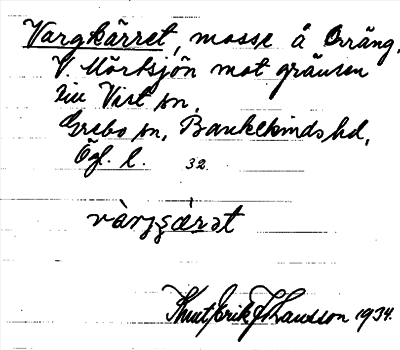 Vargkärret, mosse å Orräng,
V. Mörksjön mot gränsen
till Vist sn,
Grebo sn, Bankekinds hd,
Ögl. l. 32.
Knut Erik J:son 1934.